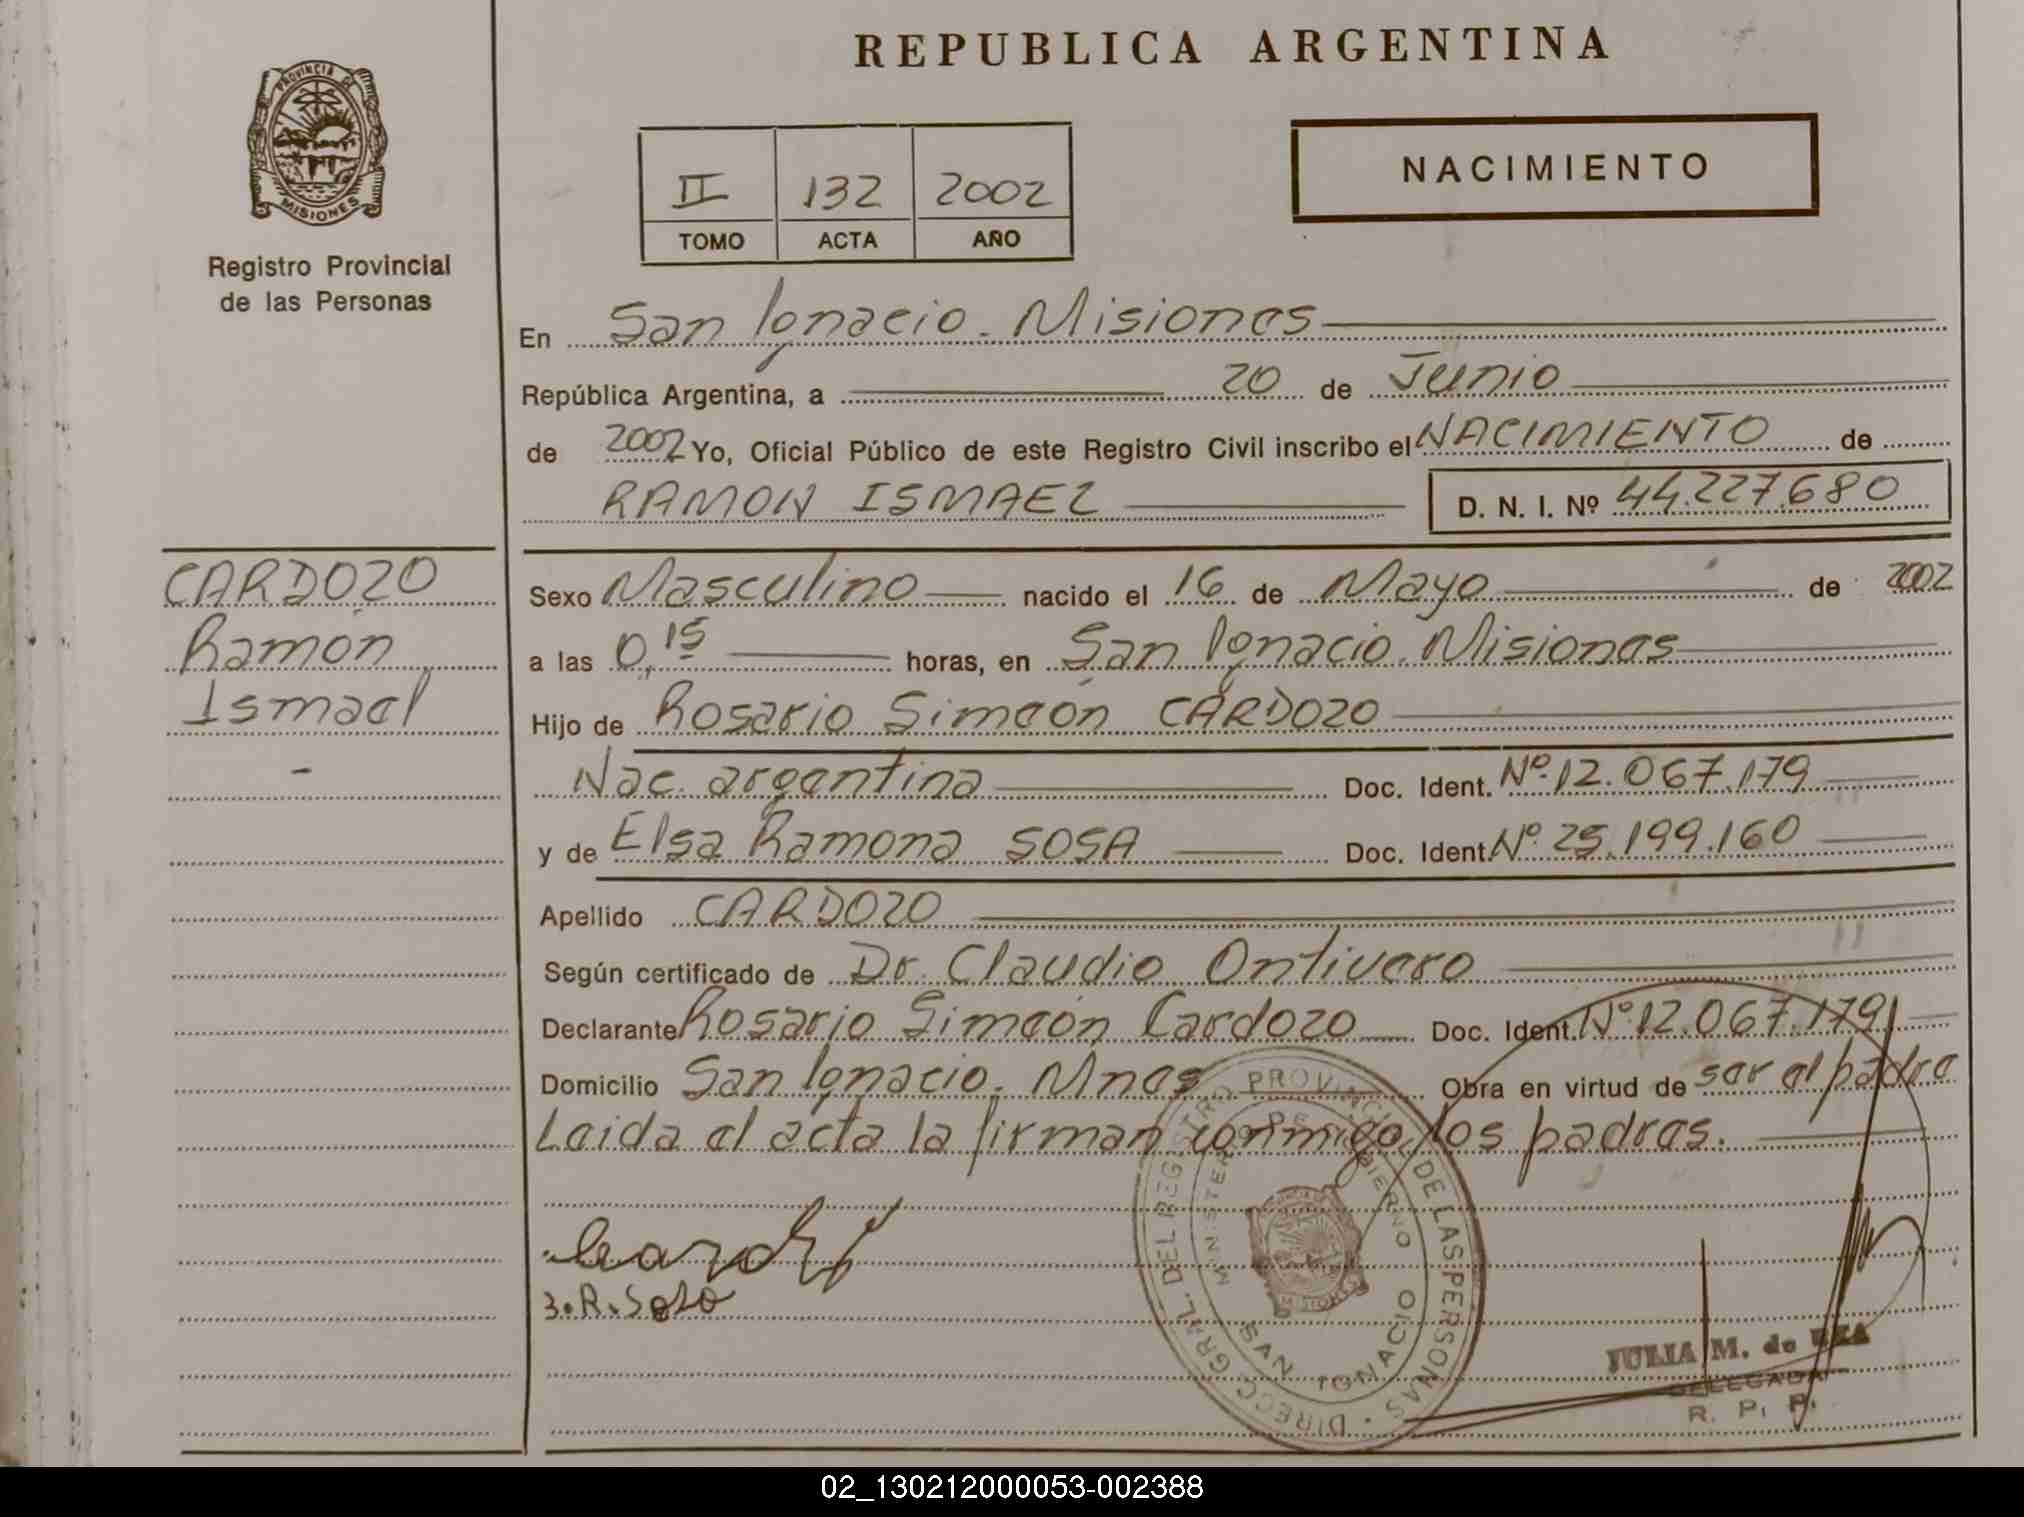 REPUBLICA ARGENTINA
PROVINCIA DE
MISIONES
Registro Provincial
de las Personas
II 132 2002
TOMO ACTA AÑO
NACIMIENTO
En San Ignacio. Misiones
República Argentina, a 20 de Junio
de 2002 Yo, Oficial Público de este Registro Civil inscribo el NACIMIENTO de
RAMON ISMAEL D. N. I. Nº 44.227.680
CARDOZO
Ramón
Ismael
-
Sexo Masculino nacido el 16 de Mayo de 2002
a las 0,15 horas, en San Ignacio. Misiones
Hijo de Rosario Simeón CARDOZO
Nac. argentina Doc. Ident. Nº 12.067.179
y de Elsa Ramona SOSA Doc. Ident. Nº 25.199.160
Apellido CARDOZO
Según certificado de Dr. Claudio Ontivero
Declarante Rosario Simeón Cardozo Doc. Ident. Nº 12.067.179
Domicilio San Ignacio. Mnes Obra en virtud de ser el padre
Leida el acta la firman conmigo los padres.
DIRECC. GRAL. DEL REGISTRO PROVINCIAL DE LAS PERSONAS
SAN IGNACIO
MISIONES
JULIA M. de
DELEGADA
R. P. P.
02_130212000053-002388